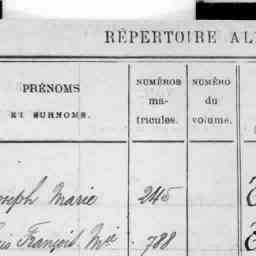 RÉPERTOIRE AL
PRÉNOMS
ET SURNOMS.
NUMÉROS
ma-
tricules.
NUMÉRO
du
volume.
oseph Marie 245
François Mie 788